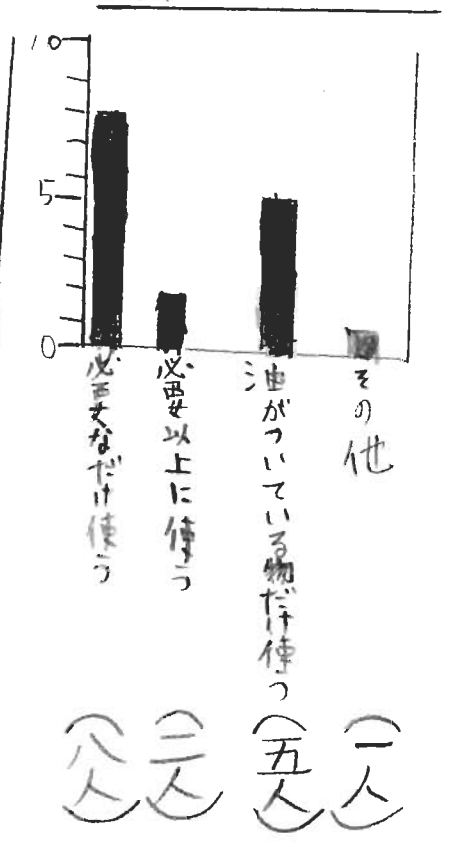 10
5
0
必要なだけ使う
必要以上に使う
油がついている物だけ使う
その他
(八人)
(二人)
(五人)
(一人)